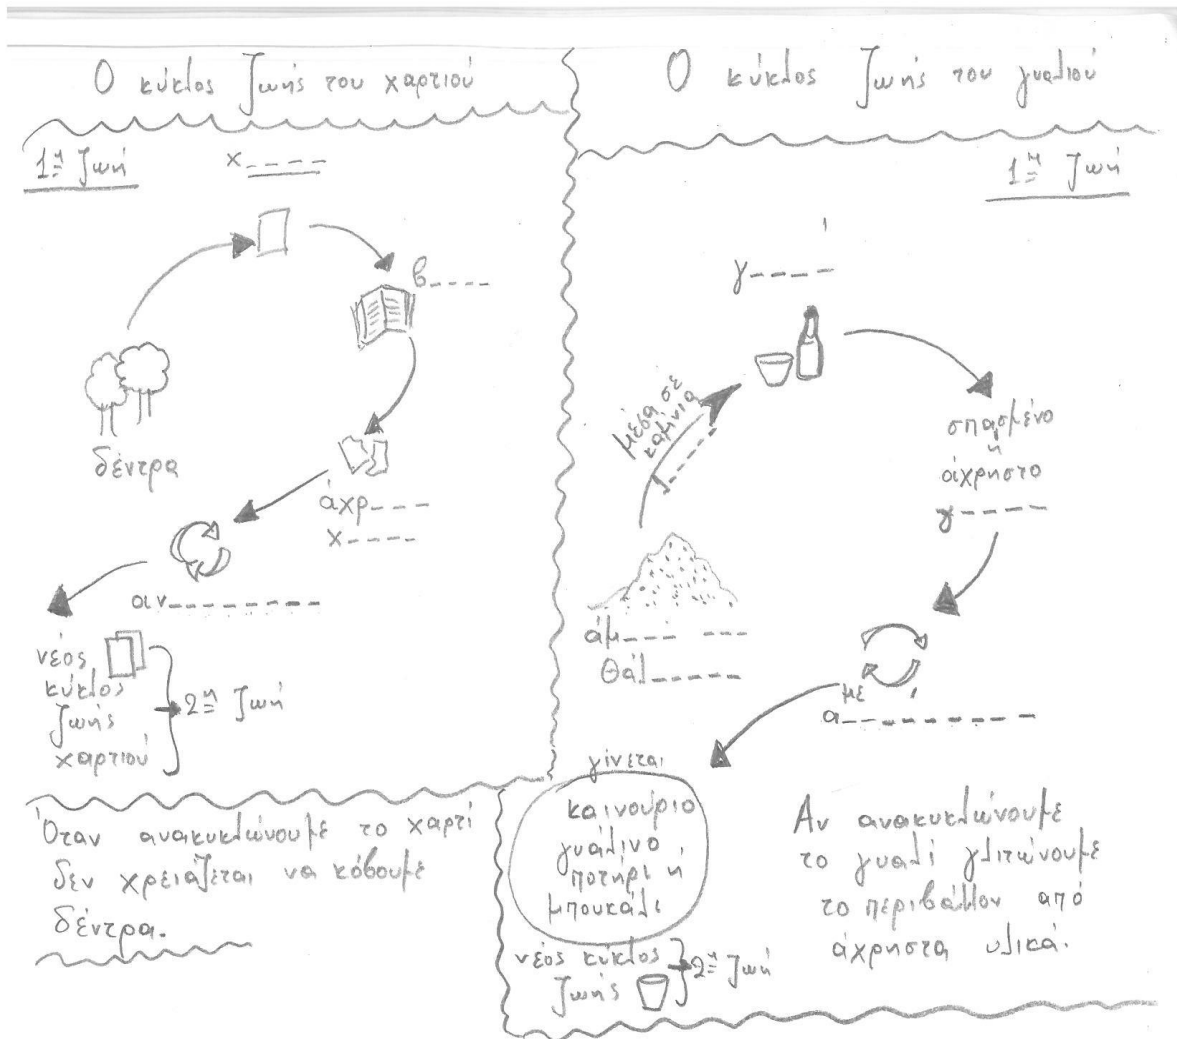 Ο κύκλος ζωής του χαρτιού
1η ζωή
χ_ _ _ _
β_ _ _ _
δέντρα
άχρ_ _ _
χ_ _ _ _
αν_ _ _ _ _ _ _ _ _
νέος
κύκλος
ζωής
χαρτιού
2η ζωή
Όταν ανακυκλώνουμε το χαρτί
δεν χρειάζεται να κόβουμε
δέντρα.
Ο κύκλος ζωής του γυαλιού
1η ζωή
γ_ _ _ _
μέσα σε
καμίνια
σπασμένο
ή
άχρηστο
γ_ _ _ _
άμ_ _ _ _ _ _
θάλ_ _ _ _ _
με
α_ _ _ _ _ _ _ _ _
γίνεται
καινούριο
γυάλινο
ποτήρι ή
μπουκάλι
νέος κύκλος
ζωής
2η ζωή
Αν ανακυκλώνουμε
το γυαλί γλιτώνουμε
το περιβάλλον από
άχρηστα υλικά.